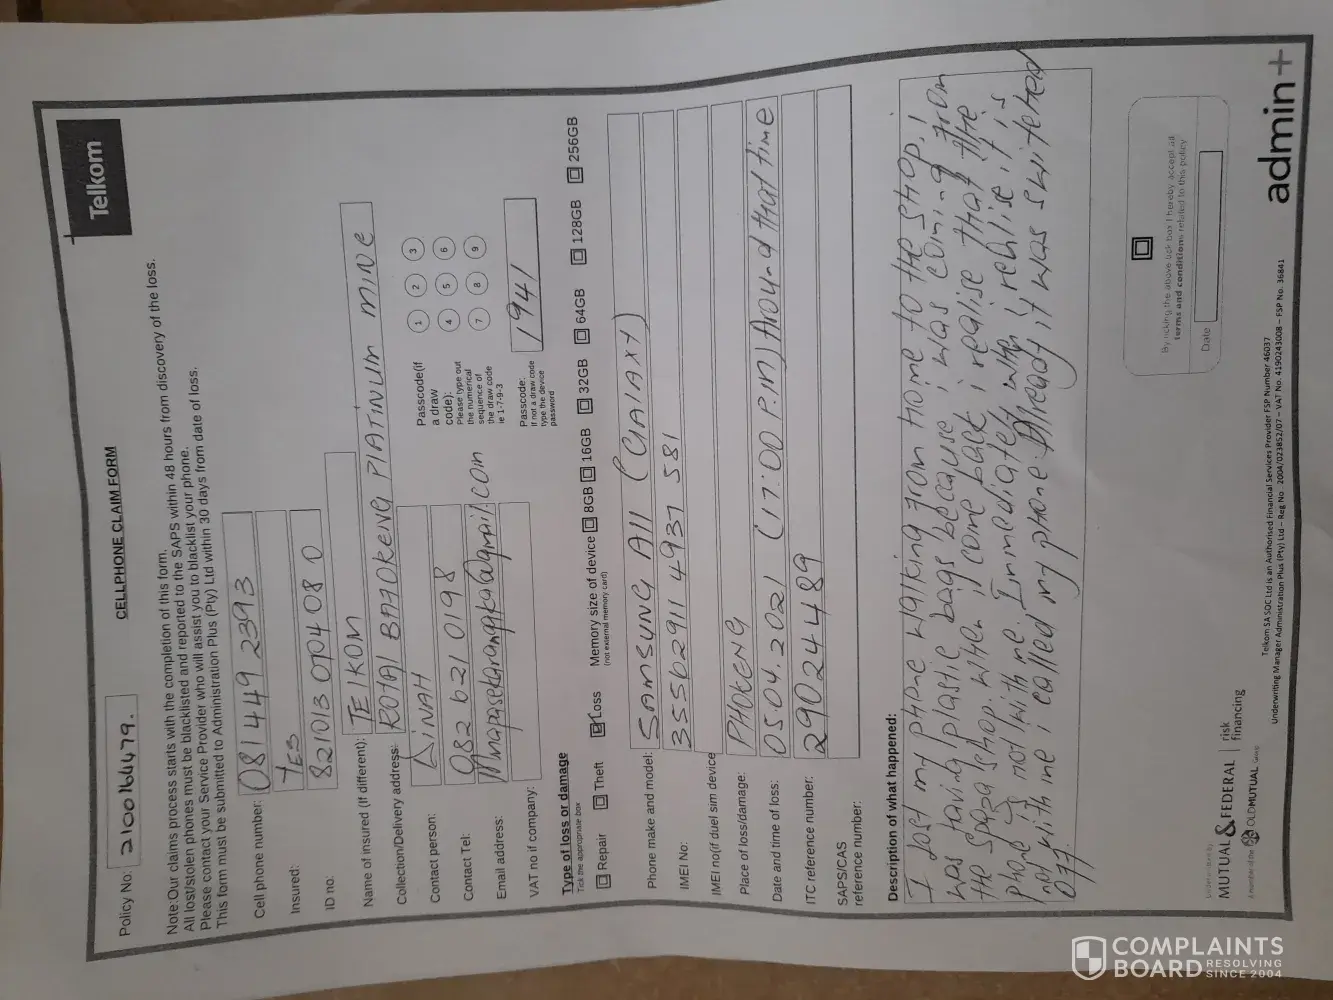 Telkom
Policy No: 21001604479.
CELLPHONE CLAIM FORM
Note:Our claims process starts with the completion of this form.
All lost/stolen phones must be blacklisted and reported to the SAPS within 48 hours from discovery of the loss.
Please contact your Service Provider who will assist you to blacklist your phone.
This form must be submitted to Administration Plus (Pty) Ltd within 30 days from date of loss.
Cell phone number: 081 449 2393
Insured: YES
ID no: 821013 0P04 08 0
Name of insured (If different): TElKOM
Collection/Delivery address: ROYAl BAFOKENG PlATINUM MINE
Contact person: DiNAH
Contact Tel: 082 621 0198
Email address:
VAT no if company:
Passcode(if a draw code):
Please type out the numerical sequence of the draw code ie 1-7-9-3
1 2 3
4 5 6
7 8 9
Passcode: 1941
if not a draw code type the device password
Type of loss or damage
Tick the appropriate box
Repair Theft Loss
Memory size of device 8GB 16GB 32GB 64GB 128GB 256GB
(not external memory card)
Phone make and model: SAMSUNG A11 (GAlAXY)
IMEI No: 35562911 4937 581
IMEI no(if duel sim device
Place of loss/damage: PHOKENG
Date and time of loss: 05.04.2021 (17:00 P.M) Around that time
ITC reference number: 290244489
SAPS/CAS reference number:
Description of what happened:
I lost my phone walking from home to the shop. i
was having plastic bags because i was coming from
the spaza shop. when i come back i realise that the
phone is not with me. Immediately when i realise it is
not with me i called my phone. Already it was switched
OFF.
By ticking the above tick box I hereby accept all
terms and conditions related to this policy
Date
Underwritten by
MUTUAL & FEDERAL
risk financing
A member of the OLDMUTUAL Group
Telkom SA SOC Ltd is an Authorised Financial Services Provider FSP Number 46037
Underwriting Manager Administration Plus (Pty) Ltd – Reg No 2004/023852/07 – VAT No. 4190243008 – FSP No. 36841
admin+
COMPLAINTS
BOARD RESOLVING
SINCE 2004